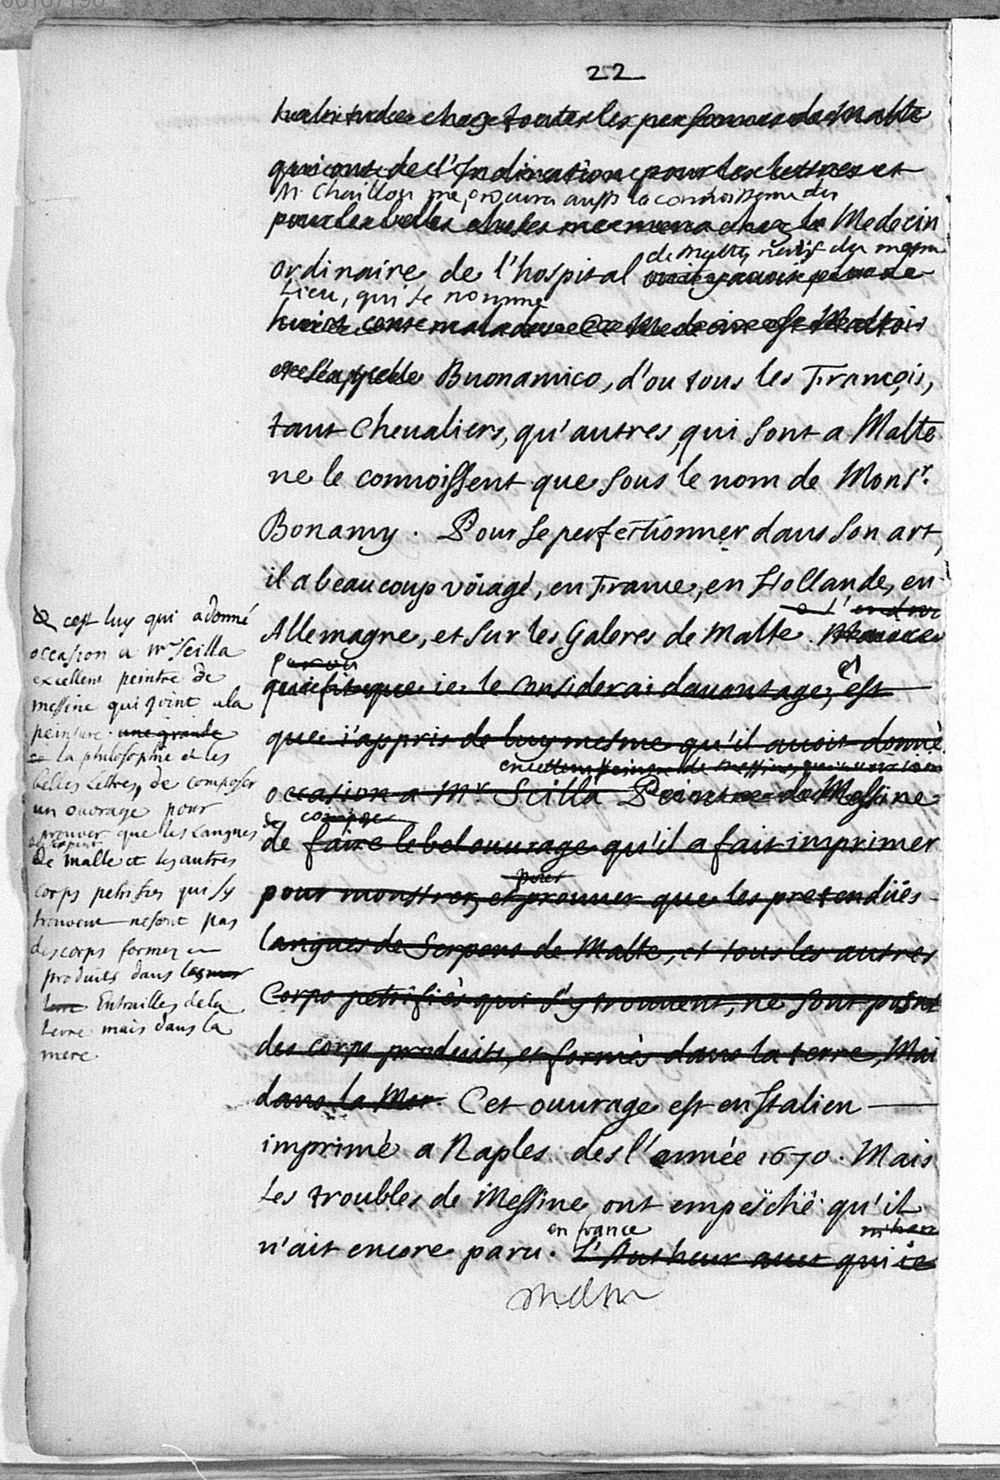 22
chez toutes les personnes de Malte
qui ont de l'Inclination pour les lettres et
Mr Chaillou me procura aussi la connoissance du
pour les belles choses me mena chez le Medecin
de Malte, natif du mesme
ordinaire de l'hospital ou il y avoit pour
Lieu, qui se nomme
huict cent malades. Ce Medecin est Maltois
et s'appelle Buonamico, d'ou tous les François,
tant Chevaliers, qu'autres, qui sont a Malte
ne le connoissent que sous le nom de Monsr.
Bonamy. Pour se perfectionner dans son art,
il a beaucoup voiagé, en France, en Hollande, en
Allemagne, et sur les Galeres de Malte.
qui fit que ie le considerai davantage, est
que i'appris de luy mesme qu'il avoit donné
occasion a Mr. Scilla Peintre de Messine
composer
de faire le bel ouvrage qu'il a fait imprimer
pour
pour monstrer, et prouver que les pretendües
langues de Serpens de Malte, et tous les autres
Corps petrifiés qui s'y trouvent, ne sont point
des corps produits, et formés dans la terre, Mai
dans la Mer. Cet ouvrage est en Italien
imprimé a Naples des l'année 1670. Mais
les troubles de Messine ont empeschë qu'il
en france
n'ait encore paru. L'Autheur avec qui ie
c'est luy qui a donné
occasion a Mr Scilla
excellent peintre de
messine qui joint a la
peinture une grande
la philosophie et les
belles Lettres, de composer
un ouvrage pour
prouver que les Langues
de serpent
de malte et les autres
corps petrifies qui s'y
trouvent ne sont pas
des corps formez
produits dans
terre Entrailles de la
terre mais dans la
mere